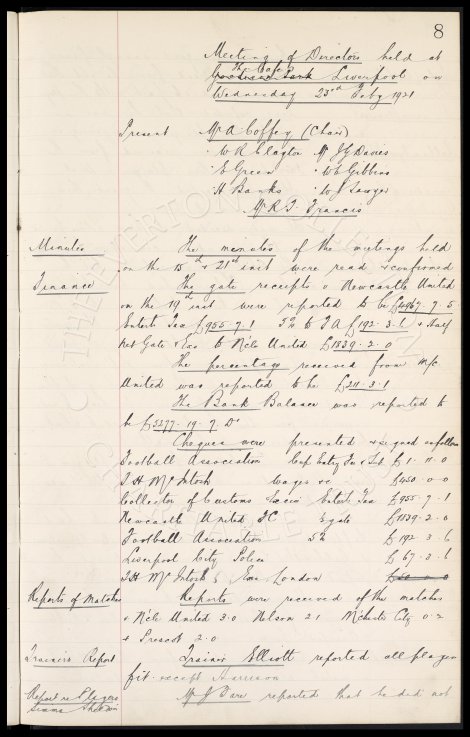 8
Meeting of Directors held at
The Cafe
Goodison Park Liverpool on
Wednesday 23rd Feby 1921
Present Mr A Coffey (Chair)
" W R Clayton Mr J G Davies
" E Green " W E Gibbins
H Banks " W J Sawyer
Mr R T Francis
Minutes The minutes of the meetings held
on the 15th & 21st inst were read & confirmed
Finance The gate receipts v Newcastle United
on the 19th inst were reported to be £4967. 7. 5
Entert Tax £955. 7. 1 5% to F A £192. 3. 6 & Half
net Gate & Exs to N'cle United £1839. 2. 0
The percentage received from M/c
United was reported to be £211. 3. 1
The Bank Balance was reported to
be £5277. 19. 9 Dr
Cheques were presented & signed as follows
Football Association Cup Entry Fee & Sub £1. 11. 0
T H McIntosh Wages &c £450. 0. 0
Collector of Customs & Excise Entert Tax £955. 7. 1
Newcastle United FC ½ gate £1839. 2. 0
Football Association 5% £192. 3. 6
Liverpool City Police £67. 3. 6
T H McIntosh Exs London
Reports of Matches Reports were received of the matches
v N'cle United 3.0 Nelson 2.1 M'chester City 0.2
& Prescot 2.0
Trainers Report Trainer Elliott reported all players
fit except Harrison
Report re Players Mr J Dare reported that he did not